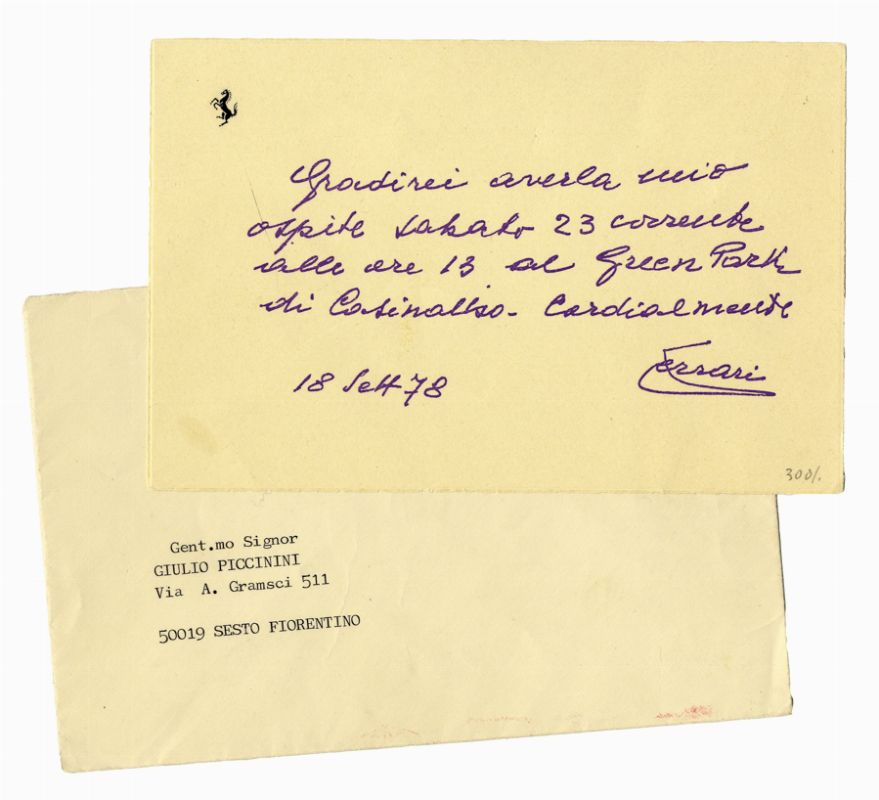 Gradirei averla mio
ospite sabato 23 corrente
alle ore 13 al Green Park
di Casinalbo - Cordialmente
Ferrari
18 Sett 78
300/.
Gent.mo Signor
GIULIO PICCININI
Via A. Gramsci 511
50019 SESTO FIORENTINO